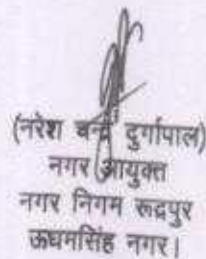 (नरेश चन्द्र दुर्गापाल)
नगर आयुक्त
नगर निगम रूद्रपुर
ऊधमसिंह नगर।